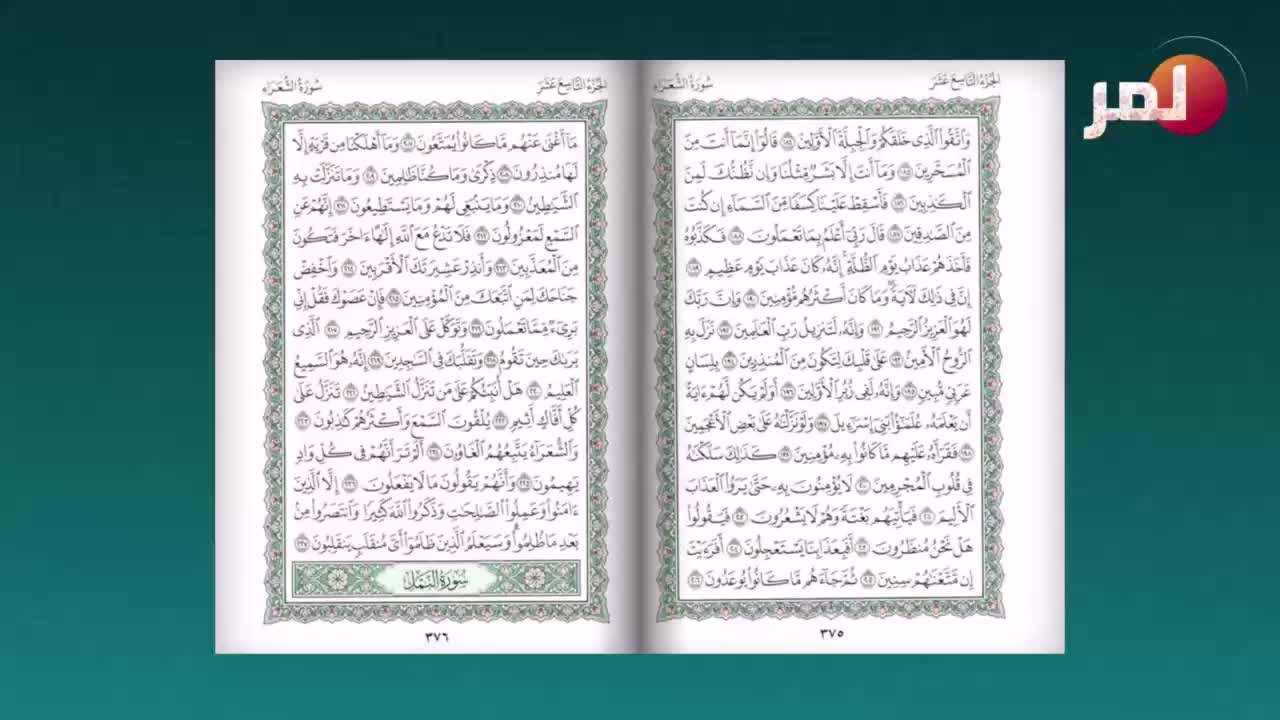 لمر
الجزء التاسع عشر
سورة الشعراء
وَاتَّقُوا الَّذِي خَلَقَكُمْ وَالْجِبِلَّةَ الْأَوَّلِينَ ١٨٤ قَالُوا إِنَّمَا أَنتَ مِنَ
الْمُسَحَّرِينَ ١٨٥ وَمَا أَنتَ إِلَّا بَشَرٌ مِّثْلُنَا وَإِن نَّظُنُّكَ لَمِنَ
الْكَاذِبِينَ ١٨٦ فَأَسْقِطْ عَلَيْنَا كِسَفًا مِّنَ السَّمَاءِ إِن كُنتَ
مِنَ الصَّادِقِينَ ١٨٧ قَالَ رَبِّي أَعْلَمُ بِمَا تَعْمَلُونَ ١٨٨ فَكَذَّبُوهُ
فَأَخَذَهُمْ عَذَابُ يَوْمِ الظُّلَّةِ إِنَّهُ كَانَ عَذَابَ يَوْمٍ عَظِيمٍ ١٨٩
إِنَّ فِي ذَٰلِكَ لَآيَةً وَمَا كَانَ أَكْثَرُهُم مُّؤْمِنِينَ ١٩٠ وَإِنَّ رَبَّكَ
لَهُوَ الْعَزِيزُ الرَّحِيمُ ١٩١ وَإِنَّهُ لَتَنزِيلُ رَبِّ الْعَالَمِينَ ١٩٢ نَزَلَ بِهِ
الرُّوحُ الْأَمِينُ ١٩٣ عَلَىٰ قَلْبِكَ لِتَكُونَ مِنَ الْمُنذِرِينَ ١٩٤ بِلِسَانٍ
عَرَبِيٍّ مُّبِينٍ ١٩٥ وَإِنَّهُ لَفِي زُبُرِ الْأَوَّلِينَ ١٩٦ أَوَلَمْ يَكُن لَّهُمْ آيَةً
أَن يَعْلَمَهُ عُلَمَاءُ بَنِي إِسْرَائِيلَ ١٩٧ وَلَوْ نَزَّلْنَاهُ عَلَىٰ بَعْضِ الْأَعْجَمِينَ
١٩٨ فَقَرَأَهُ عَلَيْهِم مَّا كَانُوا بِهِ مُؤْمِنِينَ ١٩٩ كَذَٰلِكَ سَلَكْنَاهُ
فِي قُلُوبِ الْمُجْرِمِينَ ٢٠٠ لَا يُؤْمِنُونَ بِهِ حَتَّىٰ يَرَوُا الْعَذَابَ
الْأَلِيمَ ٢٠١ فَيَأْتِيَهُم بَغْتَةً وَهُمْ لَا يَشْعُرُونَ ٢٠٢ فَيَقُولُوا
هَلْ نَحْنُ مُنظَرُونَ ٢٠٣ أَفَبِعَذَابِنَا يَسْتَعْجِلُونَ ٢٠٤ أَفَرَأَيْتَ
إِن مَّتَّعْنَاهُمْ سِنِينَ ٢٠٥ ثُمَّ جَاءَهُم مَّا كَانُوا يُوعَدُونَ ٢٠٦
٣٧٥
الجزء التاسع عشر
سورة الشعراء
مَا أَغْنَىٰ عَنْهُم مَّا كَانُوا يُمَتَّعُونَ ٢٠٧ وَمَا أَهْلَكْنَا مِن قَرْيَةٍ إِلَّا
لَهَا مُنذِرُونَ ٢٠٨ ذِكْرَىٰ وَمَا كُنَّا ظَالِمِينَ ٢٠٩ وَمَا تَنَزَّلَتْ بِهِ
الشَّيَاطِينُ ٢١٠ وَمَا يَنبَغِي لَهُمْ وَمَا يَسْتَطِيعُونَ ٢١١ إِنَّهُمْ عَنِ
السَّمْعِ لَمَعْزُولُونَ ٢١٢ فَلَا تَدْعُ مَعَ اللَّهِ إِلَٰهًا آخَرَ فَتَكُونَ
مِنَ الْمُعَذَّبِينَ ٢١٣ وَأَنذِرْ عَشِيرَتَكَ الْأَقْرَبِينَ ٢١٤ وَاخْفِضْ
جَنَاحَكَ لِمَنِ اتَّبَعَكَ مِنَ الْمُؤْمِنِينَ ٢١٥ فَإِنْ عَصَوْكَ فَقُلْ إِنِّي
بَرِيءٌ مِّمَّا تَعْمَلُونَ ٢١٦ وَتَوَكَّلْ عَلَى الْعَزِيزِ الرَّحِيمِ ٢١٧ الَّذِي
يَرَاكَ حِينَ تَقُومُ ٢١٨ وَتَقَلُّبَكَ فِي السَّاجِدِينَ ٢١٩ إِنَّهُ هُوَ السَّمِيعُ
الْعَلِيمُ ٢٢٠ هَلْ أُنَبِّئُكُمْ عَلَىٰ مَن تَنَزَّلُ الشَّيَاطِينُ ٢٢١ تَنَزَّلُ عَلَىٰ
كُلِّ أَفَّاكٍ أَثِيمٍ ٢٢٢ يُلْقُونَ السَّمْعَ وَأَكْثَرُهُمْ كَاذِبُونَ ٢٢٣
وَالشُّعَرَاءُ يَتَّبِعُهُمُ الْغَاوُونَ ٢٢٤ أَلَمْ تَرَ أَنَّهُمْ فِي كُلِّ وَادٍ
يَهِيمُونَ ٢٢٥ وَأَنَّهُمْ يَقُولُونَ مَا لَا يَفْعَلُونَ ٢٢٦ إِلَّا الَّذِينَ
آمَنُوا وَعَمِلُوا الصَّالِحَاتِ وَذَكَرُوا اللَّهَ كَثِيرًا وَانتَصَرُوا مِن
بَعْدِ مَا ظُلِمُوا وَسَيَعْلَمُ الَّذِينَ ظَلَمُوا أَيَّ مُنقَلَبٍ يَنقَلِبُونَ ٢٢٧
سورة النمل
٣٧٦